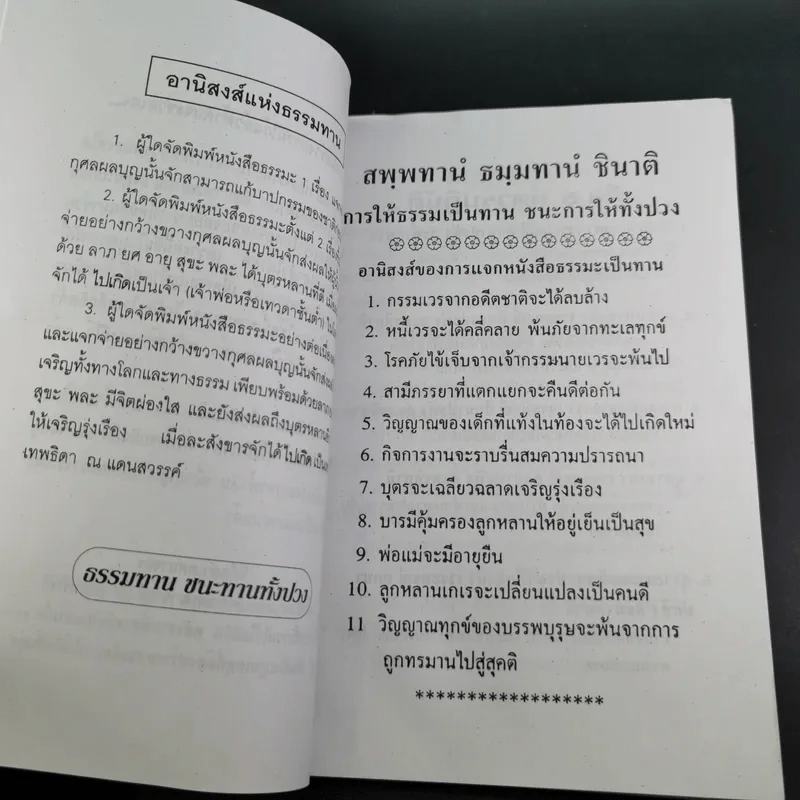 อานิสงส์แห่งธรรมทาน
1. ผู้ใดจัดพิมพ์หนังสือธรรมะ 1 เรื่อง แจก
กุศลผลบุญนั้นจักสามารถแก้บาปกรรมของชาติ
2. ผู้ใดจัดพิมพ์หนังสือธรรมะตั้งแต่ 2 เรื่อง
จ่ายอย่างกว้างขวางกุศลผลบุญนั้นจักส่งผลให้
ด้วย ลาภ ยศ อายุ สุขะ พละ ได้บุตรหลานที่ดี
จักได้ ไปเกิดเป็นเจ้า (เจ้าพ่อหรือเทวดาชั้นต่ำ)
3. ผู้ใดจัดพิมพ์หนังสือธรรมะอย่างต่อเนื่อง
และแจกจ่ายอย่างกว้างขวางกุศลผลบุญนั้นจักส่งผล
เจริญทั้งทางโลกและทางธรรม เพียบพร้อมด้วยลาภ
สุขะ พละ มีจิตผ่องใส และยังส่งผลถึงบุตรหลาน
ให้เจริญรุ่งเรือง เมื่อละสังขารจักได้ไปเกิด เป็น
เทพธิดา ณ แดนสวรรค์
ธรรมทาน ชนะทานทั้งปวง
สพฺพทานํ ธมฺมทานํ ชินาติ
การให้ธรรมเป็นทาน ชนะการให้ทั้งปวง
อานิสงส์ของการแจกหนังสือธรรมะเป็นทาน
1. กรรมเวรจากอดีตชาติจะได้ลบล้าง
2. หนี้เวรจะได้คลี่คลาย พ้นภัยจากทะเลทุกข์
3. โรคภัยไข้เจ็บจากเจ้ากรรมนายเวรจะพ้นไป
4. สามีภรรยาที่แตกแยกจะคืนดีต่อกัน
5. วิญญาณของเด็กที่แท้งในท้องจะได้ไปเกิดใหม่
6. กิจการงานจะราบรื่นสมความปรารถนา
7. บุตรจะเฉลียวฉลาดเจริญรุ่งเรือง
8. บารมีคุ้มครองลูกหลานให้อยู่เย็นเป็นสุข
9. พ่อแม่จะมีอายุยืน
10. ลูกหลานเกเรจะเปลี่ยนแปลงเป็นคนดี
11 วิญญาณทุกข์ของบรรพบุรุษจะพ้นจากการ
ถูกทรมานไปสู่สุคติ
******************